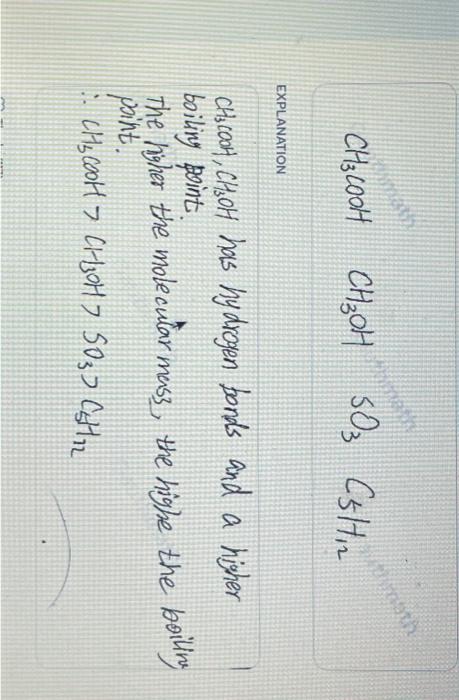 CH3COOH CH3OH SO3 C5H12
EXPLANATION
CH3COOH, CH3OH has hydrogen bonds and a higher
boiling point.
The higher the molecular mass, the highe the boiling
point.
∴ CH3COOH > CH3OH > SO3 > C5H12